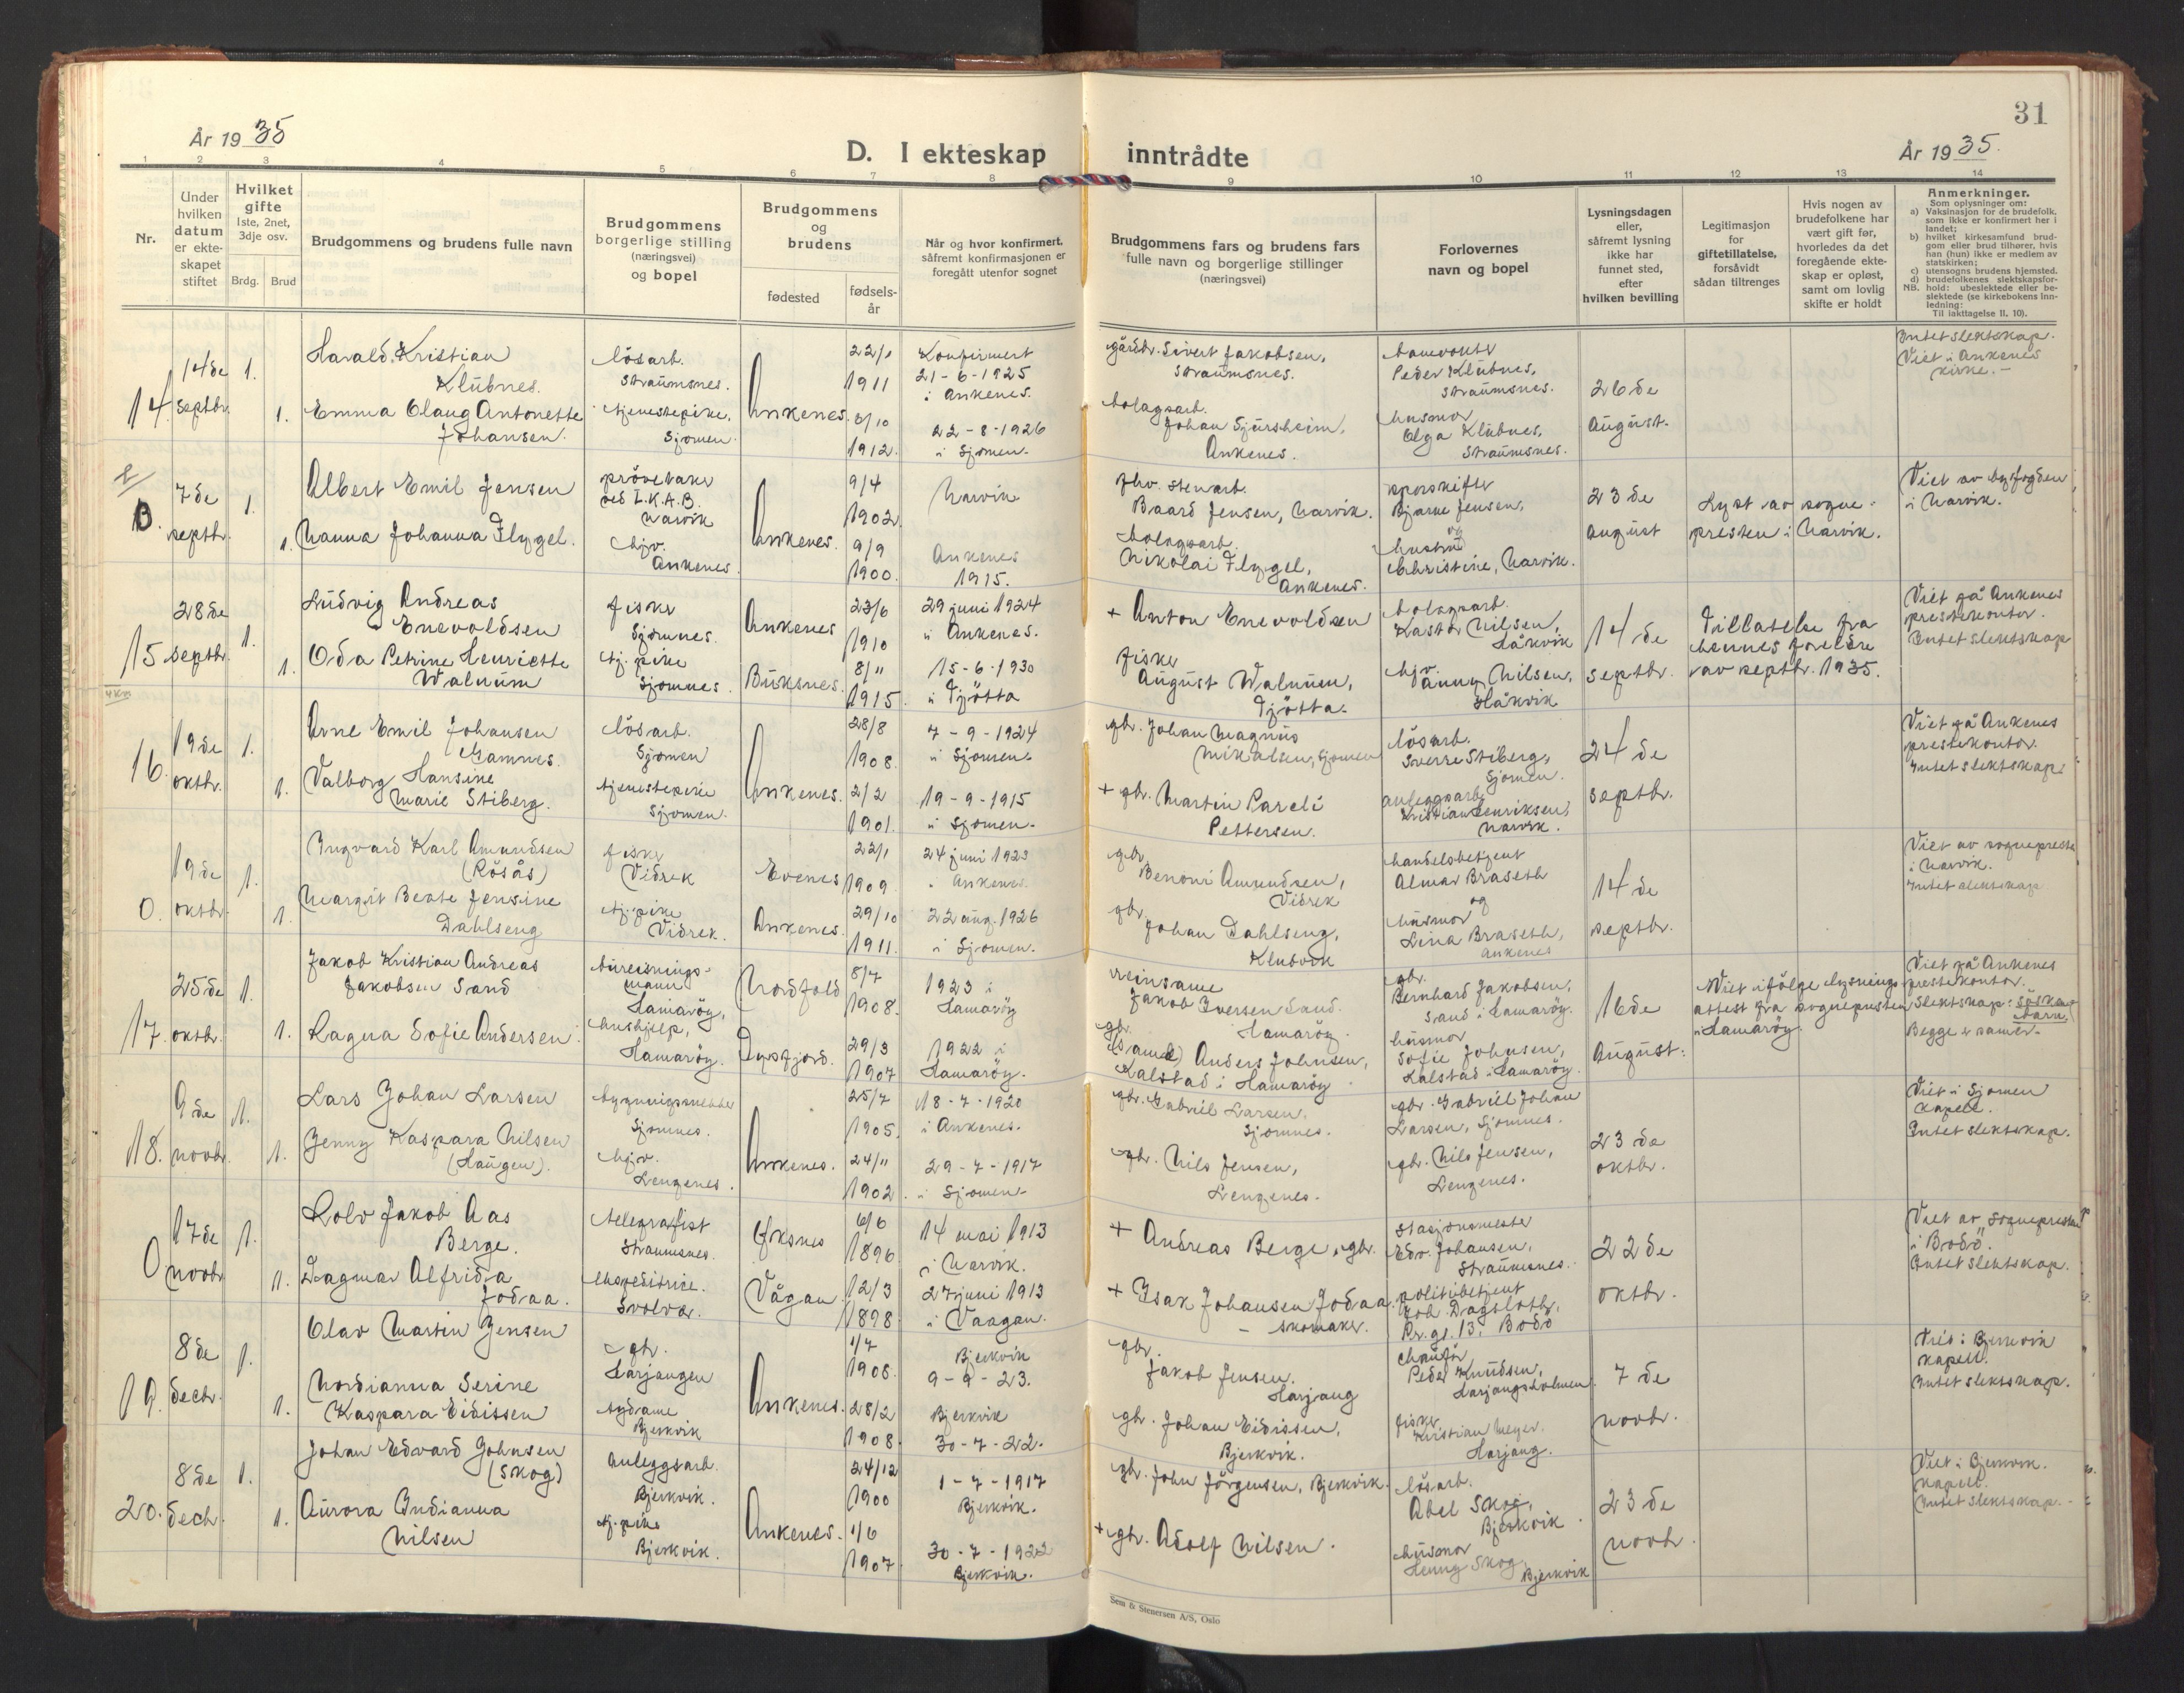 31
År 1935
D. I ekteskap inntrådte
År 1935.
1 2 3 4 5 6 7 8 9 10 11 12 13 14
Nr.
Under hvilken datum er ekteskapet stiftet
Hvilket gifte
1ste, 2net, 3dje osv.
Brdg. Brud
Brudgommens og brudens fulle navn
Brudgommens borgerlige stilling (næringsvei) og bopel
Brudgommens og brudens
fødested
fødselsår
Når og hvor konfirmert, såfremt konfirmasjonen er foregått utenfor sognet
Brudgommens fars og brudens fars fulle navn og borgerlige stillinger (næringsvei)
Forlovernes navn og bopel
Lysningsdagen eller, såfremt lysning ikke har funnet sted, efter hvilken bevilling
Legitimasjon for giftetillatelse, forsåvidt sådan tiltrenges
Hvis nogen av brudefolkene har vært gift før, hvorledes da det foregående ekteskap er opløst, samt om lovlig skifte er holdt
Anmerkninger.
Som oplysninger om:
a) Vaksinasjon for de brudefolk, som ikke er konfirmert her i landet;
b) hvilket kirkesamfund brudgom eller brud tilhører, hvis han (hun) ikke er medlem av statskirken;
c) utensogns brudens hjemsted.
d) brudefolkenes slektskapsforhold: ubeslektede eller beslektede (se kirkebokens Innledning:
NB. Til iakttagelse II, 10).
14. 14de septbr. 1. 1.
Harald Kristian
Klübnes.
lösarb.
Straumsnes.
Ankenes.
22/1
1911
Konfirmert
21-6-1925
i Ankenes.
gårdbr. Sivert Jakobsen,
Straumsnes.
banevokter
Peder Klübnes,
Straumsnes.
26de
august.
Intet slektskap.
Viet i Ankenes
kirke.-
Emma Olaug Antonette
Johansen.
tjenestepike,
Sjomen.
3/10
1912.
22-8-1926
i Sjomen.
bolagsarb.
Johan Sjursheim,
Ankenes.
husmor
Olga Klübnes,
Straumsnes.
7de septbr. 1. 1.
Albert Emil Jensen
prövetaker
ved L.K.A.B.
Narvik
Ankenes.
9/4
1902.
Narvik
fhv. stenarb.
Baard Jensen, Narvik.
sporskifter
Bjarne Jensen,
og
23de
august
Lyst av sogne-
presten i Narvik.
Viet av byfogden
i Narvik.
Nanna Johanna Flygel.
hjv.
Ankenes.
9/9
1900.
Ankenes
1915.
bolagsarb.
Nikolai Flygel,
Ankenes.
hustru
Christine, Narvik.
15 28de septbr. 1. 1.
4 Km
Ludvig Andreas
Enevoldsen
fisker
Sjomnes.
Ankenes
23/6
1910
29 juni 1924
i Ankenes.
+ Anton Enevoldsen
bolagsarb.
Kastor Nilsen,
Håkvik
14de
septbr.
Tillatelse fra
hennes foreldre
av septbr. 1935.
Viet på Ankenes
prestekontor.
Intet slektskap
Oda Petrine Henriette
Walnum
tj. pike
Sjomnes.
Buksnes.
8/11
1915.
15-6-1930
i Tjötta
fisker
August Walnum,
Tjötta.
hjv.
Anny Nilsen,
Håkvik
16. 19de oktbr. 1. 1.
Arne Emil Johansen
Hamnes.
lösarb.
Sjomen
Ankenes.
28/8
1908.
7-9-1924
i Sjomen.
gbr. Johan Magnus
Mikalsen, Sjomen
lösarb.
Sverre Stiberg,
Sjomen.
24de
septbr.
Viet på Ankenes
prestekontor.
Intet slektskap.
Valborg Hansine
Marie Stiberg.
tjenestepike
Sjomen.
2/2
1901.
19-9-1915
i Sjomen.
+ gbr. Martin Pareli
Pettersen.
anleggsarb.
Kristian Henriksen,
Narvik.
0. 19de oktbr. 1. 1.
Ingvard Karl Amundsen
(Rösås)
fisker
Vidrek
Evenes
22/1
1909.
24 juni 1923
i Ankenes.
gbr.
Benoni Amundsen,
Vidrek
handelsbetjent
Almar Braseth
og
14de
septbr.
Viet av sognepresten
i Narvik.
Intet slektskap
Margit Beate Jensine
Dahlseng
tj. pike
Vidrek.
Ankenes.
29/10
1911.
22 aug. 1926
i Sjomen.
gbr.
Johan Dahlseng,
Klubvik
husmor
Lina Braseth,
Ankenes
17. 25de oktbr. 1. 1.
Jakob Kristian Andreas
Jakobsen Sand
bureisnings-
mann
Hamaröy,
Nordfold
8/7
1908.
1923 i
Hamaröy
reinsame
Jakob Iversen Sand.
Hamaröy.
gbr.
Bernhard Jakobsen,
Sand i Hamaröy.
16de
August.
Viet ifölge lysnings-
attest fra sognepresten
i Hamaröy.
Viet på Ankenes
prestekontor.
Slektskap: Sösken-
barn.
Begge er samer.
Ragna Sofie Andersen.
hushjelp,
Hamaröy.
Tysfjord.
29/3
1907
1922 i
Hamaröy.
gbr.
(same) Anders Johnsen,
Kalstad i Hamaröy.
husmor
Sofie Johnsen,
Kalstad i Hamaröy.
18. 9de novbr. 1. 1.
Lars Johan Larsen
bygningssnekker
Sjomnes.
Ankenes.
25/7
1905.
18-7-1920
i Ankenes.
gbr. Gabriel Larsen.
Sjomnes.
gbr. Gabriel Johan
Larsen, Sjomnes.
23de
oktbr.
Viet i Sjomen
kapell.
Intet slektskap.
Jenny Kaspara Nilsen
(Haugen).
hjv.
Lengenes.
24/11
1902.
29-7-1917
i Sjomen.
gbr. Nils Jensen,
Lengenes.
gbr. Nils Jensen,
Lengenes.
0 17de novbr. 1. 1.
Rolv Jakob Aas
Berge.
telegrafist
Straumsnes.
Öksnes
6/6
1896
14 mai 1913
i Narvik.
+ Andreas Berge, gbr.
stasjonsmester
Edv. Johansen,
Straumsnes.
22de
oktbr.
Viet av sognepresten
i Bodö.
Intet slektskap.
Dagmar Alfrida
Jodaa.
ekspeditrise.
Svolvær.
Vågan
12/3
1898
27 juni 1913
i Vaagan.
+ Isak Johansen Jodaa.
- skomaker.
politibetjent
Joh. Dagslott,
Pr. gt. 13, Bodö
19. 8de decbr. 1. 1.
Olav Martin Jensen
gbr.
Harjangen
Ankenes.
1/7
1908.
Bjerkvik
9-9-23.
gbr.
Jakob Jensen.
Harjang
chauför
Peder Knudsen,
Harjangsholmen
7de
novbr.
Viet i Bjerkvik
kapell.
Intet slektskap.
Nordianna Serine
Kaspara Eidissen
sydame
Bjerkvik
28/2
1908.
Bjerkvik
30-7-22.
gbr. Johan Eidissen,
Bjerkvik.
fisker
Kristian Meyer.
Harjang.
20. 8de decbr. 1. 1.
Johan Edvard Johnsen
(Skog)
Anleggsarb.
Bjerkvik.
Ankenes.
24/12
1900
1-7-1917
Bjerkvik.
gbr. John Jörgensen, Bjerkvik.
lösarb.
Abel Skog,
Bjerkvik.
23de
novbr.
Viet i Bjerkvik.
kapell.
Intet slektskap.-
Aurora Indianna
Nilsen
tj. pike
Bjerkvik.
1/6
1907.
30-7-1922
Bjerkvik.
+ gbr. Adolf Nilsen.
husmor
Henny Skog,
Bjerkvik
Sem & Stenersen A/S, Oslo